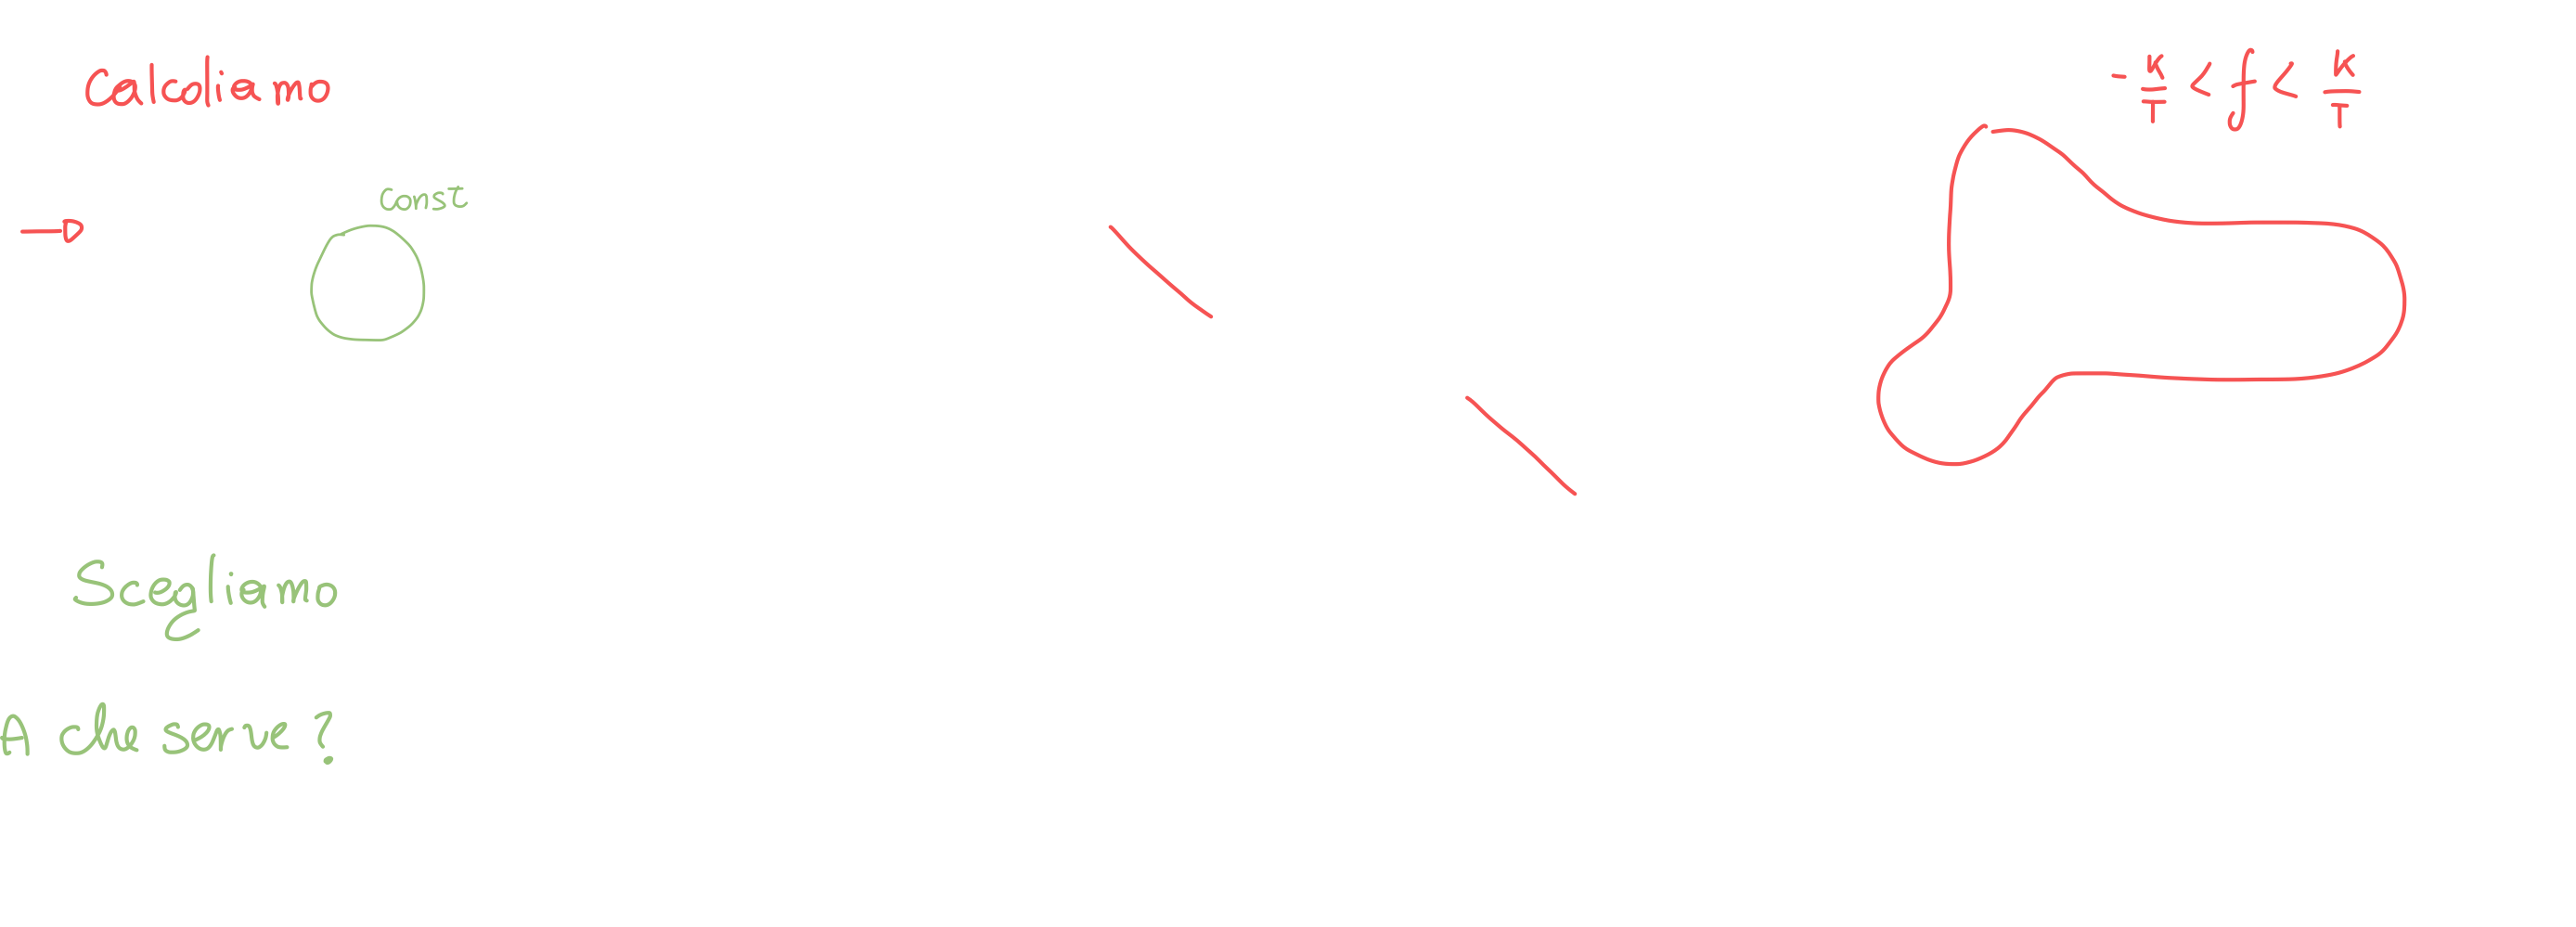 Calcoliamo
- K/T < f < K/T
const
Scegliamo
A che serve?